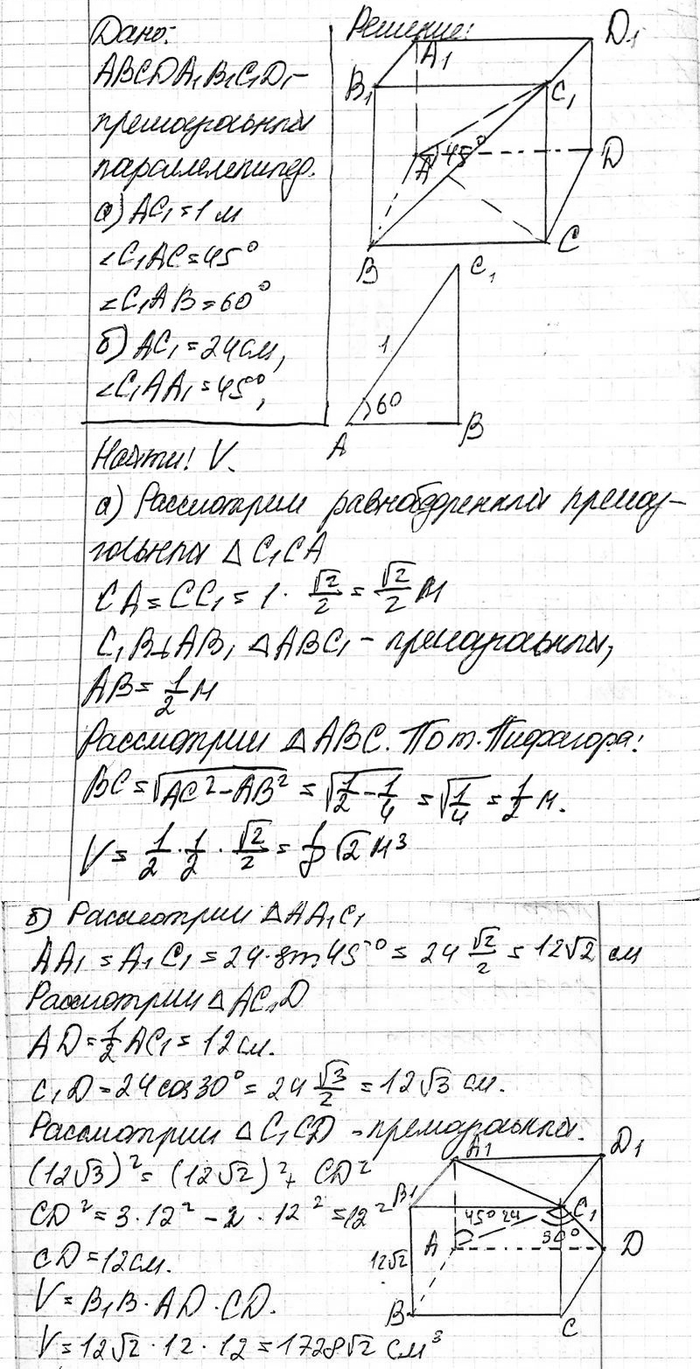 Дано:
ABCDA₁B₁C₁D₁ –
прямоугольный
параллелепипед.
а) AC₁ = 1 м
∠C₁AC = 45°
∠C₁AB = 60°
б) AC₁ = 24 см,
∠C₁AA₁ = 45°,
Найти: V.
Решение:
A₁
D₁
B₁
C₁
A
45°
D
B
C
C₁
1
60
A
B
а) Рассмотрим равнобедренный прямоу-
гольный △ C₁CA
CA = CC₁ = 1 · √2/2 = √2/2 м
C₁B ⊥ AB, △ABC₁ – прямоугольный,
AB = 1/2 м
Рассмотрим △ABC. По т. Пифагора:
BC = √(AC² – AB²) = √(1/2 – 1/4) = √(1/4) = 1/2 м.
V = 1/2 · 1/2 · √2/2 = 1/8 √2 м³
б) Рассмотрим △AA₁C₁
AA₁ = A₁C₁ = 24 · sin 45° = 24 √2/2 = 12√2 см
Рассмотрим △ AC₁D
AD = 1/2 AC₁ = 12 см.
C₁D = 24 cos 30° = 24 √3/2 = 12√3 см.
Рассмотрим △ C₁CD – прямоугольный.
(12√3)² = (12√2)² + CD²
CD² = 3 · 12² – 2 · 12² = 12²
CD = 12 см.
V = B₁B · AD · CD.
V = 12√2 · 12 · 12 = 1728√2 см³
A₁
D₁
B₁
C₁
45°
24
30°
A
D
12√2
B
C